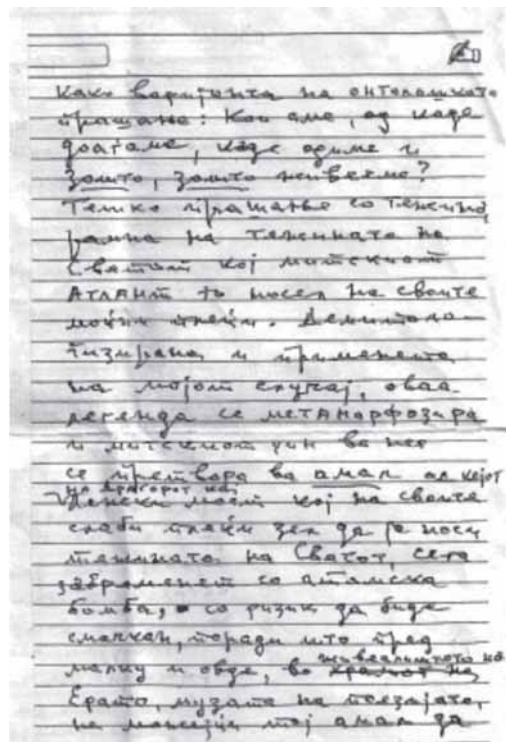 Како варијанта на онтолошкото
прашање: Кои сме, од каде
доаѓаме, каде одиме и
зошто, зошто живееме?
Тешко прашање со тежина,
рамна на тежината на
Светот кој митскиот
Атлант го носел на своите
моќни плеќи. Демитоло-
гизирана и применета
на мојот случај, оваа
легенда се метаморфозира
и митскиот џин во неа
се претвора во амал од кејот
на Драгорот кај
Ленски мост кој на своите
слаби плеќи зел да ја носи
тежината на Светот, сега
заременет со атомска
бомба, со ризик да биде
смачкан, поради што пред
малку и овде, во живеалиштето на
храмот на
Ерато, музата на поезијата,
не можејќи тој амал да